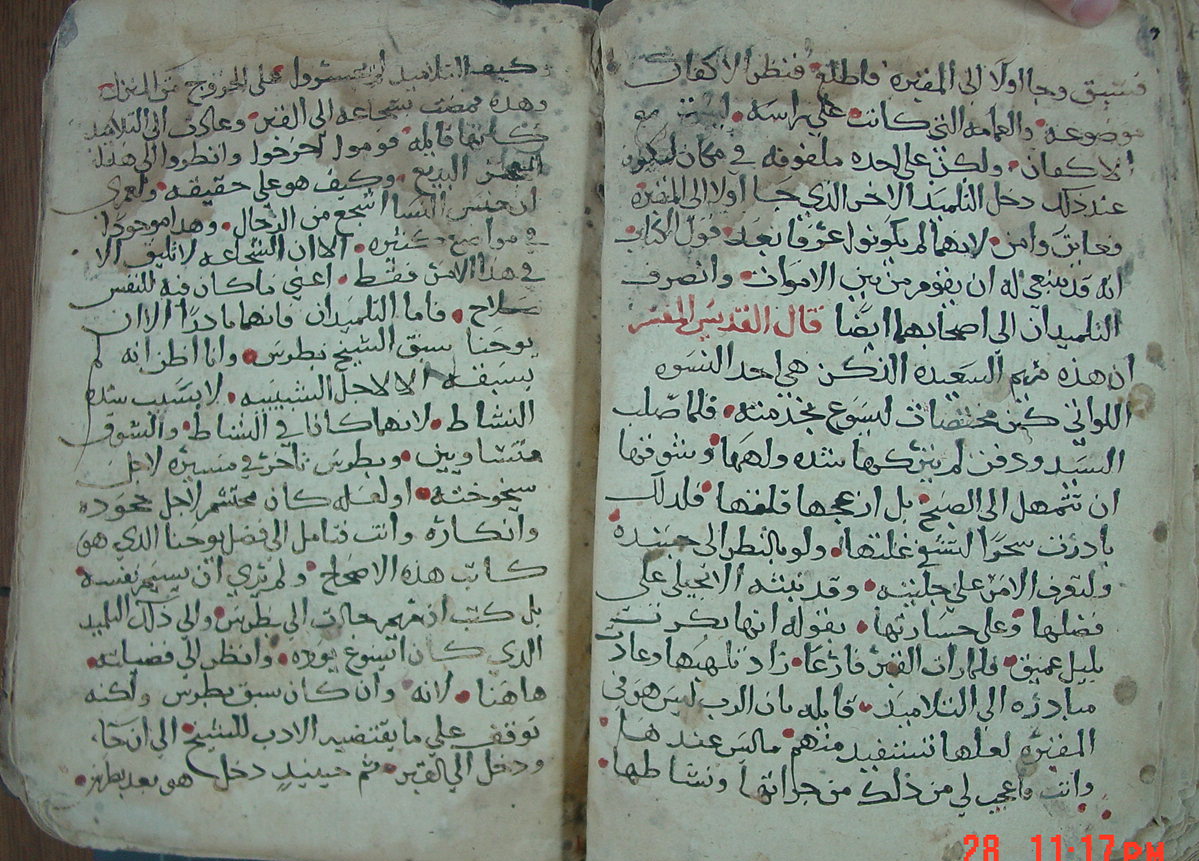 فسبق وجا اولا الى المقبره فاطلع فنظر الاكفان
موضوعه والعمامه التي كانت على راسه ليست مع
الاكفان ولكن على احده ملفوفه في مكان
عند ذلك دخل التلميذ الاخر الذي جا اولا الى المقبره
فعاين وامن لانهما لم يكونوا عرفا بعد قول الكتاب
انه قد ينبغي له ان يقوم من بين الاموات وانصرف
التلميدان الى اصحابهما ايضًا قال القديس المفسر
ان هذه مريم السعيده الذكر هي احد النسوه
اللواتي كن مختصات ليسوع بخدمته فلما صلب
السيد ودفن لم يتركها شده ولهها وشوقها
ان تتمهل الى الصبح بل ازعجها قلقها فلدلك
بادرت سحرًا لتشفي غلتها ولو بالنظر الى جسده
ولتعرف الامر على جليته وقد نبته الانجيلي على
فضلها وعلى جسارتها بقوله انها بكرت
بليل عميق فلما رات القبر فارغا زاد تلهبها وعادت
مبادره الى التلاميذ قايله بان الرب ليس هو في
المقبره لعلها تستفيد منهم ما ليس عندها
وانت فاعجب لي من ذلك من جراتها ونشاطها
وكيف التلاميذ لم يجسروا على الخروج من المنزل
وهذه مضت بشجاعه الى القبر وعادت الى التلاميذ
كانها قايله قوموا اخرجوا وانظروا الى هذا
البديع وكيف هو على حقيقه ولعمري
ان جنس النسا اشجع من الرجال وهذا موجودًا
في مواضع كثيره الا ان الشجاعه لا تليق الا
في هذا الامر فقط اعني ما كان فيه للنفس
صلاح فاما التلميدان فانهما بادرا الا ان
يوحنا سبق الشيخ بطرس وانا اظن انه لم
يسبقه الا لاجل الشبيبيه لا بسبب شده
النشاط لانهما كانا في النشاط والشوق
متساويين وبطرس تاخر في مسيره لاجل
شيخوخته او لعله كان محتشم لاجل جحوده
وانكاره وانت فتامل الى فضل يوحنا الذي هو
كاتب هذه الاصحاح ولم يرى ان يسمي نفسه
بل كتب ان مريم جات الى بطرس والى ذلك التلميد
الذي كان ايسوع يوده وانظر الى فضيلته
هاهنا لانه وان كان سبق بطرس ولكنه
توقف على ما يقتضيه الادب للشيخ الى ان جا
ودخل الى القبر ثم حينيدٍ دخل هو بعد بطرس
28 11:17 PM